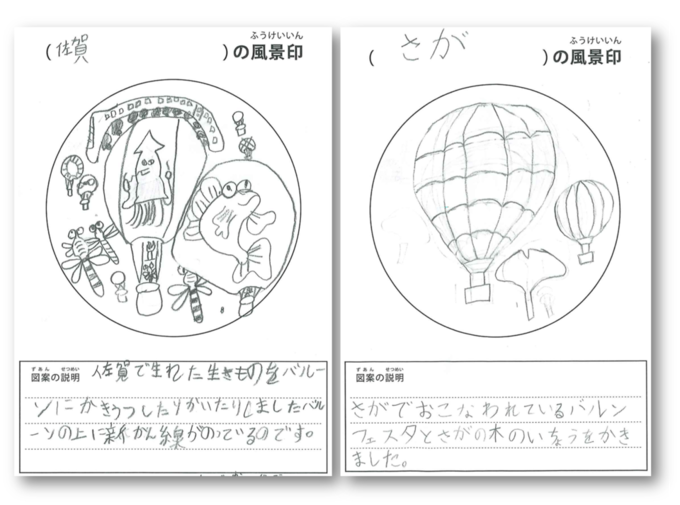 ふうけいいん
(佐賀)の風景印
ずあん せつめい
図案の説明
佐賀で生れた生きものをバルー
ンにかきうつしたりかいたりしましたバル
ーンの上に新かん線がのっているのです。
ふうけいいん
(さが)の風景印
ずあん せつめい
図案の説明
さがでおこなわれているバルン
フェスタとさがの木のいちょうをかき
ました。